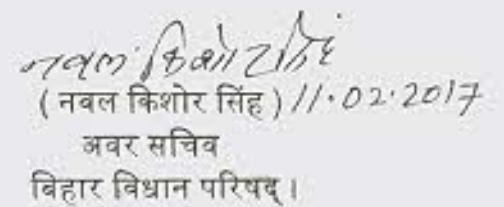 नवल किशोर सिंह
( नवल किशोर सिंह ) 11.02.2017
अवर सचिव
बिहार विधान परिषद् ।